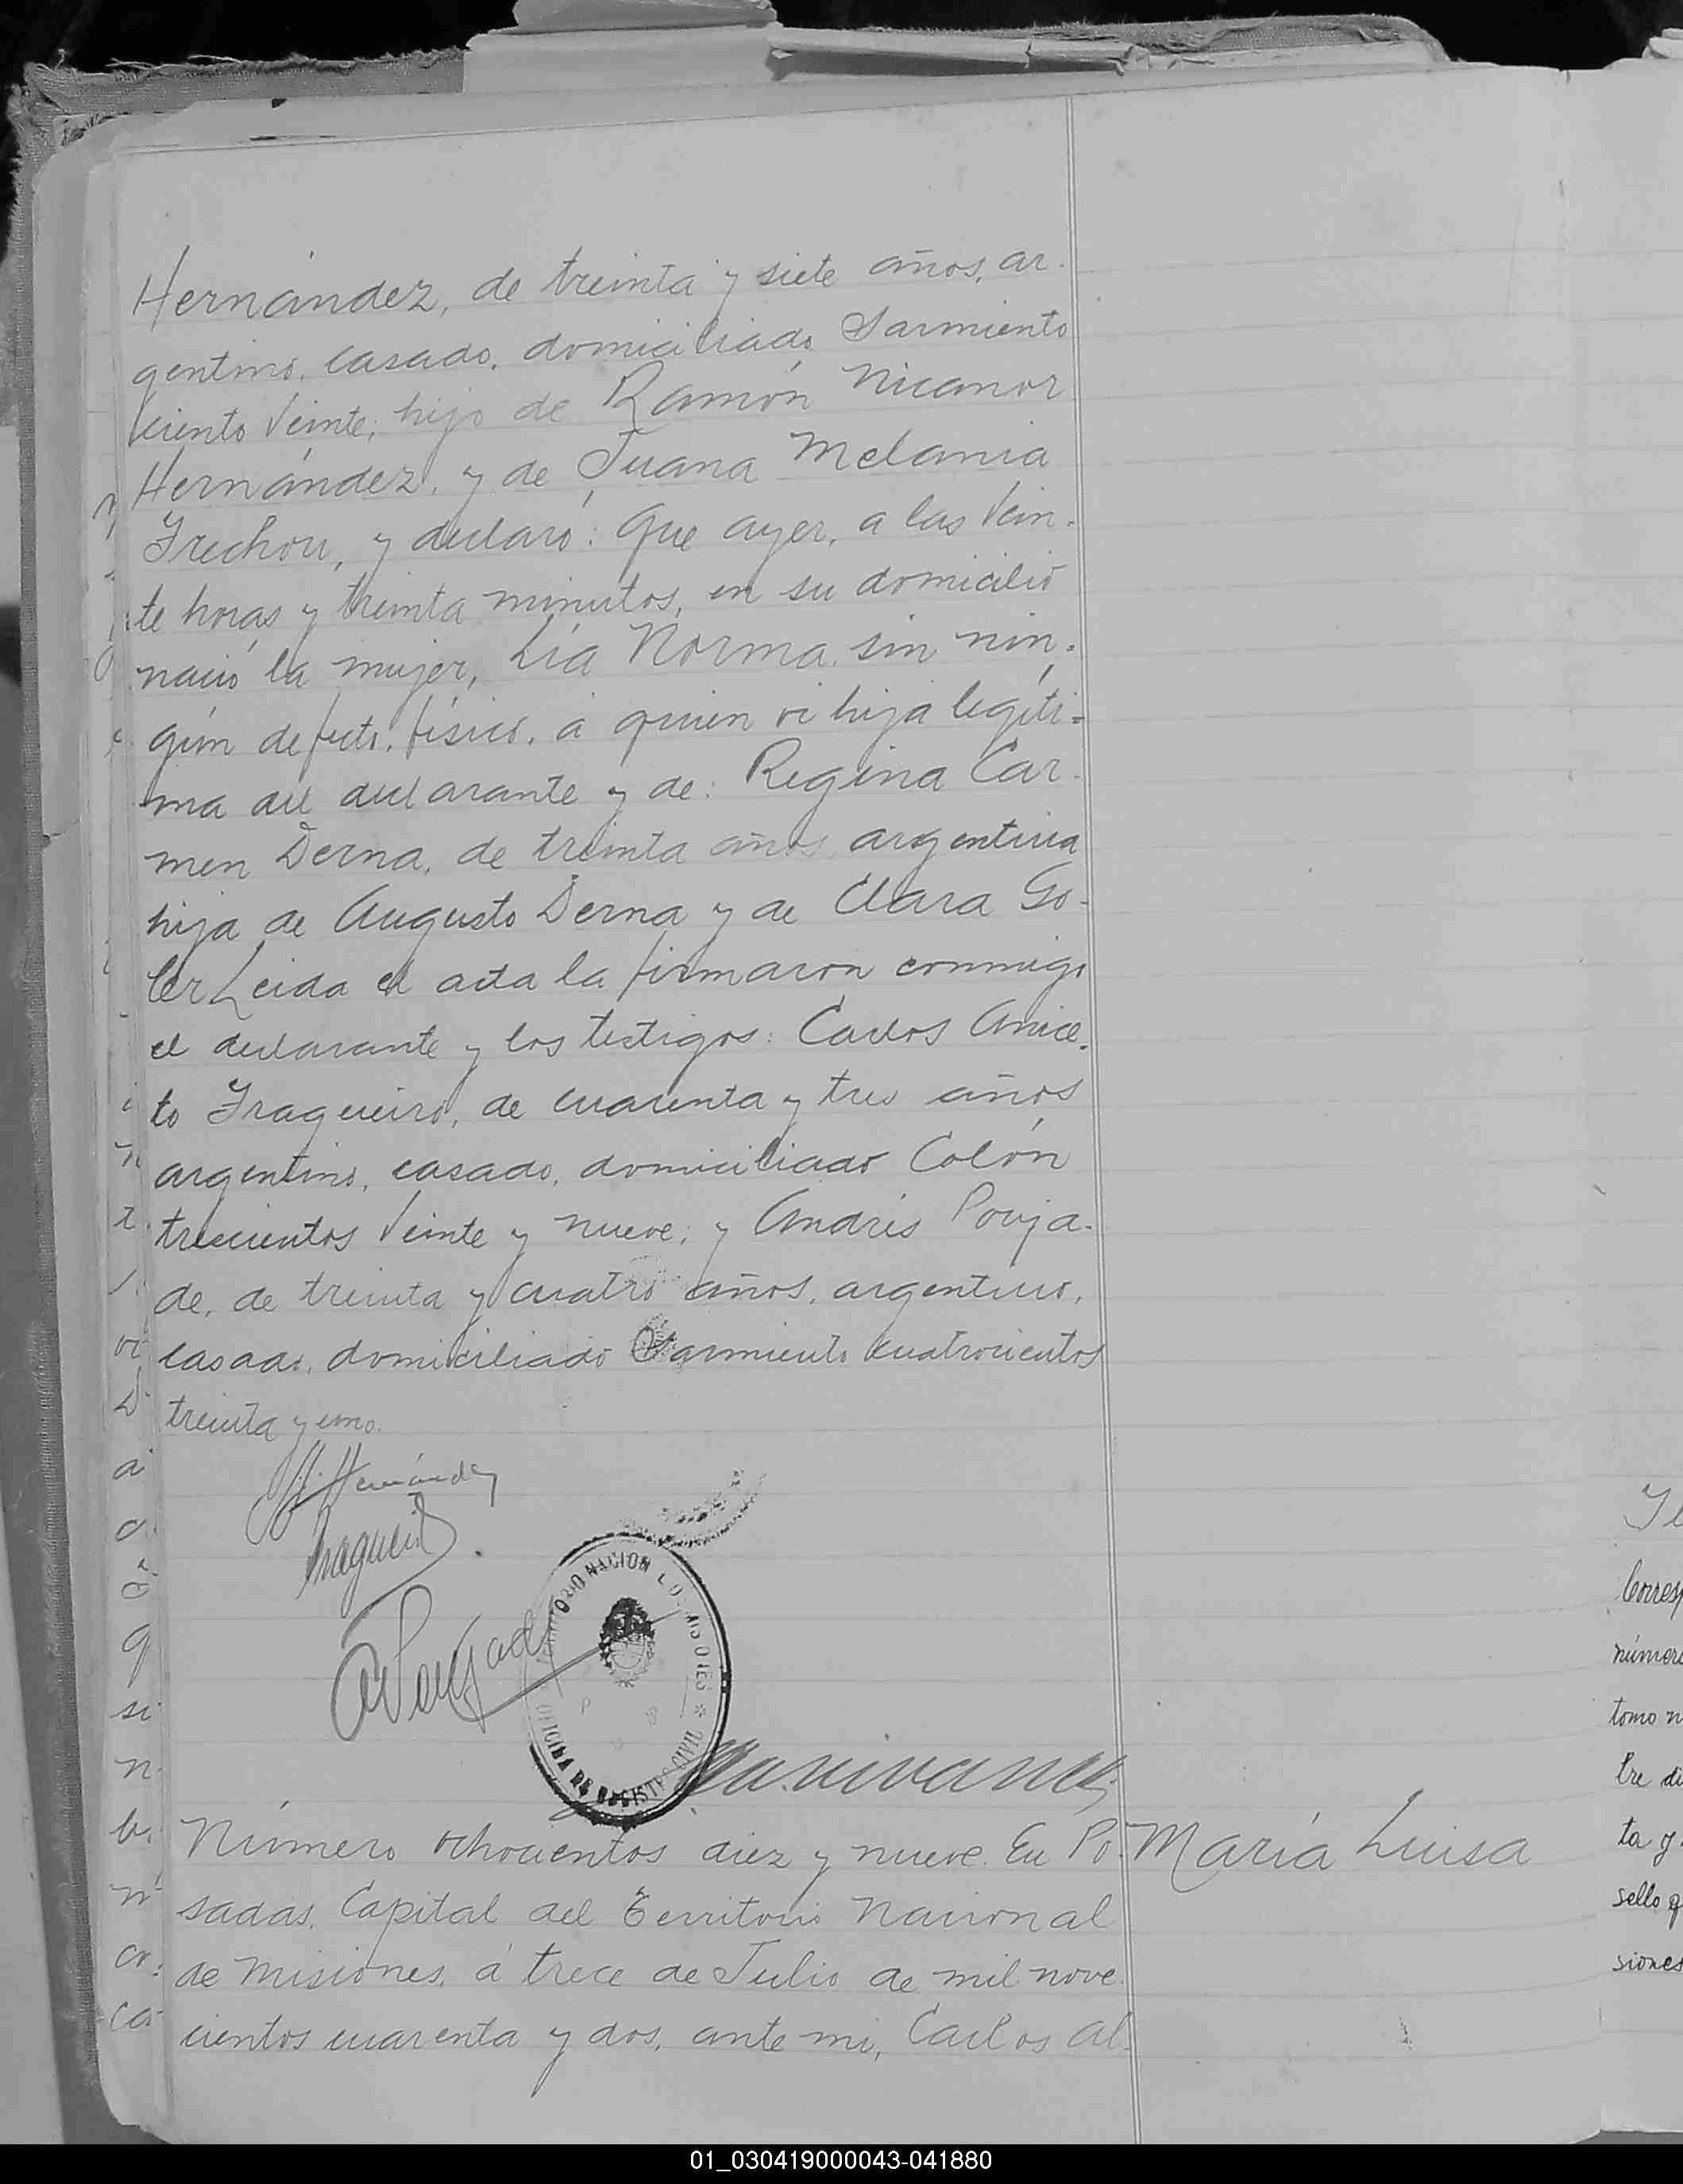 Hernández, de treinta y siete años, ar-
gentino, casado, domiciliado Sarmiento
ciento veinte; hijo de Ramón Nicanor
Hernández, y de Juana Melania
Frechou, y declaró: Que ayer, a las vein-
te horas y treinta minutos, en su domicilio
nació la mujer, Lía Norma, sin nin-
gún defecto, físico, a quien vi hija legíti=
ma del declarante y de: Regina Car-
men Derna, de treinta años, argentina
hija de Augusto Derna y de Clara Go-
ler Leida el acta la firmaron conmigo
el declarante y los testigos: Carlos Anice-
to Fragueiro, de cuarenta y tres años
argentino, casado, domiciliado Colón
trescientos veinte y nueve; y Andrés Pouja-
de, de treinta y cuatro años, argentino,
casado, domiciliado Sarmiento cuatrocientos
treinta y uno.
Hernández
Fragueiro
OFICINA DE REGISTRO CIVIL
Número ochocientos diez y nueve. En Po- María Luisa
sadas, Capital del Territorio Nacional
de Misiones, á trece de Julio de mil nove-
cientos cuarenta y dos, ante mi, Carlos Al-
Corres
número
tomo n
bre di
ta y
sello q
siones
01_030419000043-041880